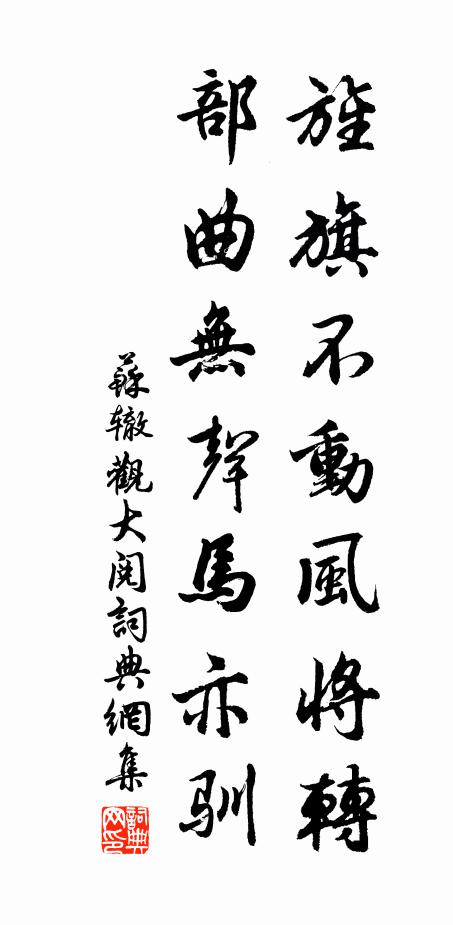 旌旗不動風將轉
部曲無聲馬亦馴
蘇轍觀大閱詞典網集
詞典網印